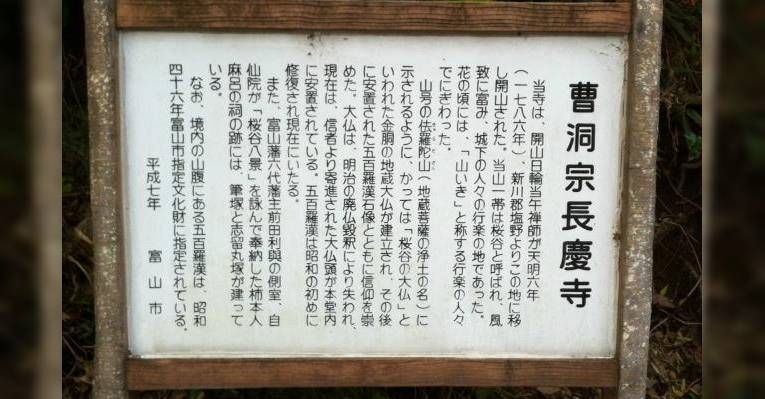 曹洞宗長慶寺
当寺は、開山日輪当午禅師が天明六年
(一七八六年)、新川郡塩野よりこの地に移
し開山された。当山一帯は桜谷と呼ばれ、風
致に富み、城下の人々の行楽の地であった。
花の頃には、「山いき」と称する行楽の人々
でにぎわった。
山号の佉羅陀山(地蔵菩薩の浄土の名)に
示されるように、かつては「桜谷の大仏」と
いわれた金銅の地蔵大仏が建立され、その後
に安置された五百羅漢石像とともに信仰を崇
めた。大仏は、明治の廃仏毀釈により失われ、
現在は、信者より寄進された大仏頭が本堂内
に安置されている。五百羅漢は昭和の初めに
修復され現在にいたる。
また、富山藩六代藩主前田利與の側室、自
仙院が「桜谷八景」を詠んで奉納した柿本人
麻呂の祠の跡には、筆塚と志留丸塚が建って
いる。
なお、境内の山腹にある五百羅漢は、昭和
四十六年富山市指定文化財に指定されている。
平成七年 富山市